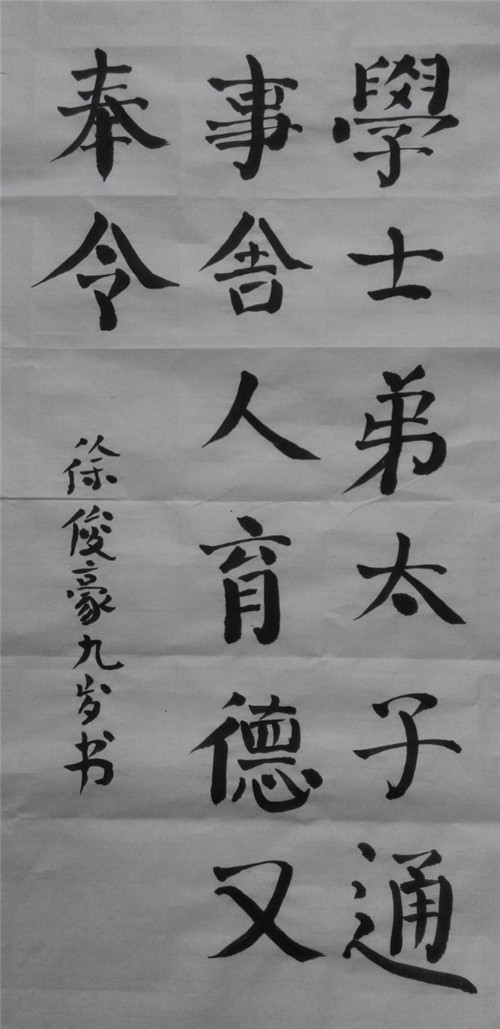 學士弟太子通
事舍人育德又
奉令
徐俊豪九岁书